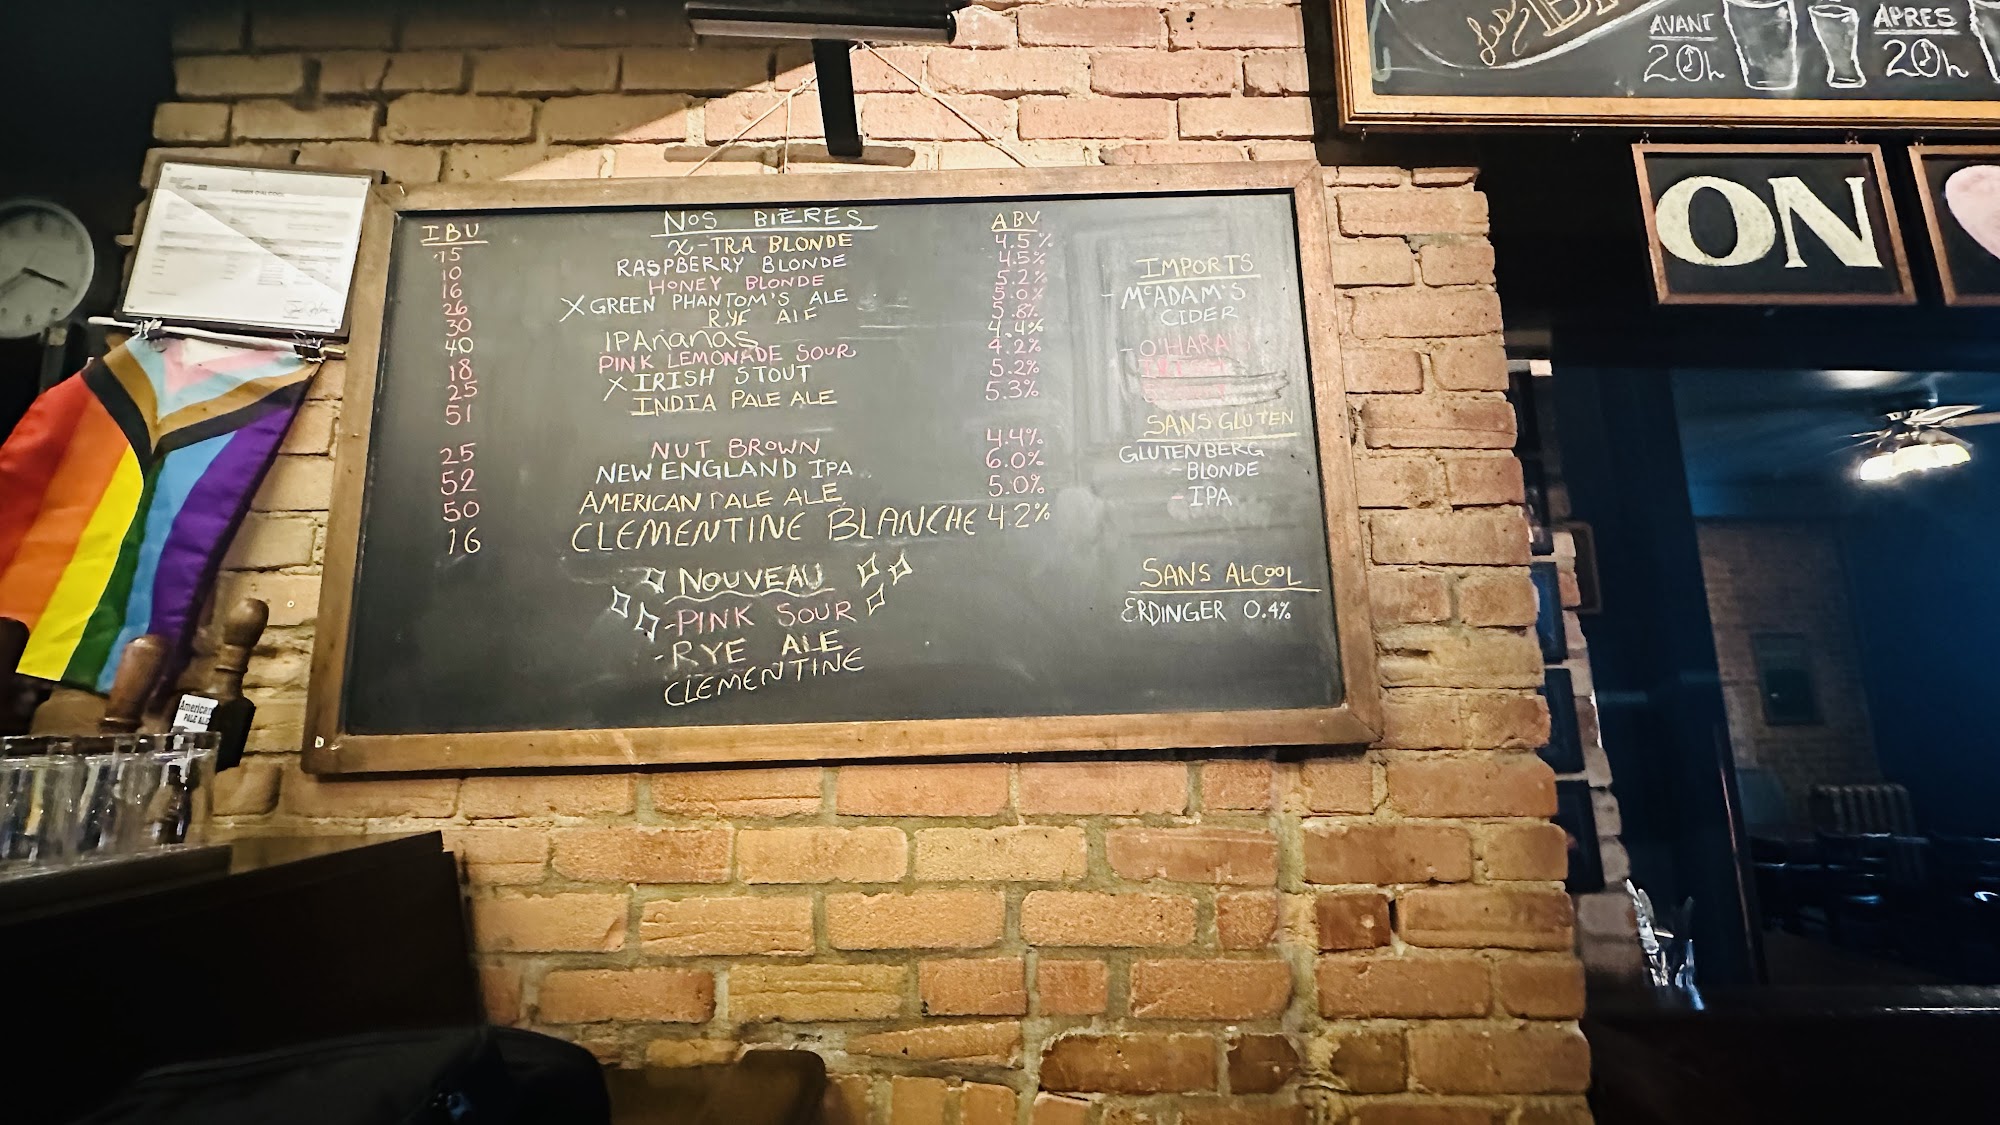 AVANT
20h
APRES
20h
ON
IBU NOS BIÈRES ABV
15 X-TRA BLONDE 4.5%
10 RASPBERRY BLONDE 4.5%
16 HONEY BLONDE 5.2%
26 X GREEN PHANTOM'S ALE 5.0%
30 RYE ALE 5.8%
40 IPAnanas 4.4%
18 PINK LEMONADE SOUR 4.2%
25 X IRISH STOUT 5.2%
51 INDIA PALE ALE 5.3%
25 NUT BROWN 4.4%
52 NEW ENGLAND IPA 6.0%
50 AMERICAN PALE ALE 5.0%
16 CLEMENTINE BLANCHE 4.2%
NOUVEAU
-PINK SOUR
-RYE ALE
CLEMENTINE
IMPORTS
- McADAM'S
CIDER
- O'HARA'S
SANS GLUTEN
GLUTENBERG
-BLONDE
-IPA
SANS ALCOOL
ERDINGER 0.4%
American
PALE ALE